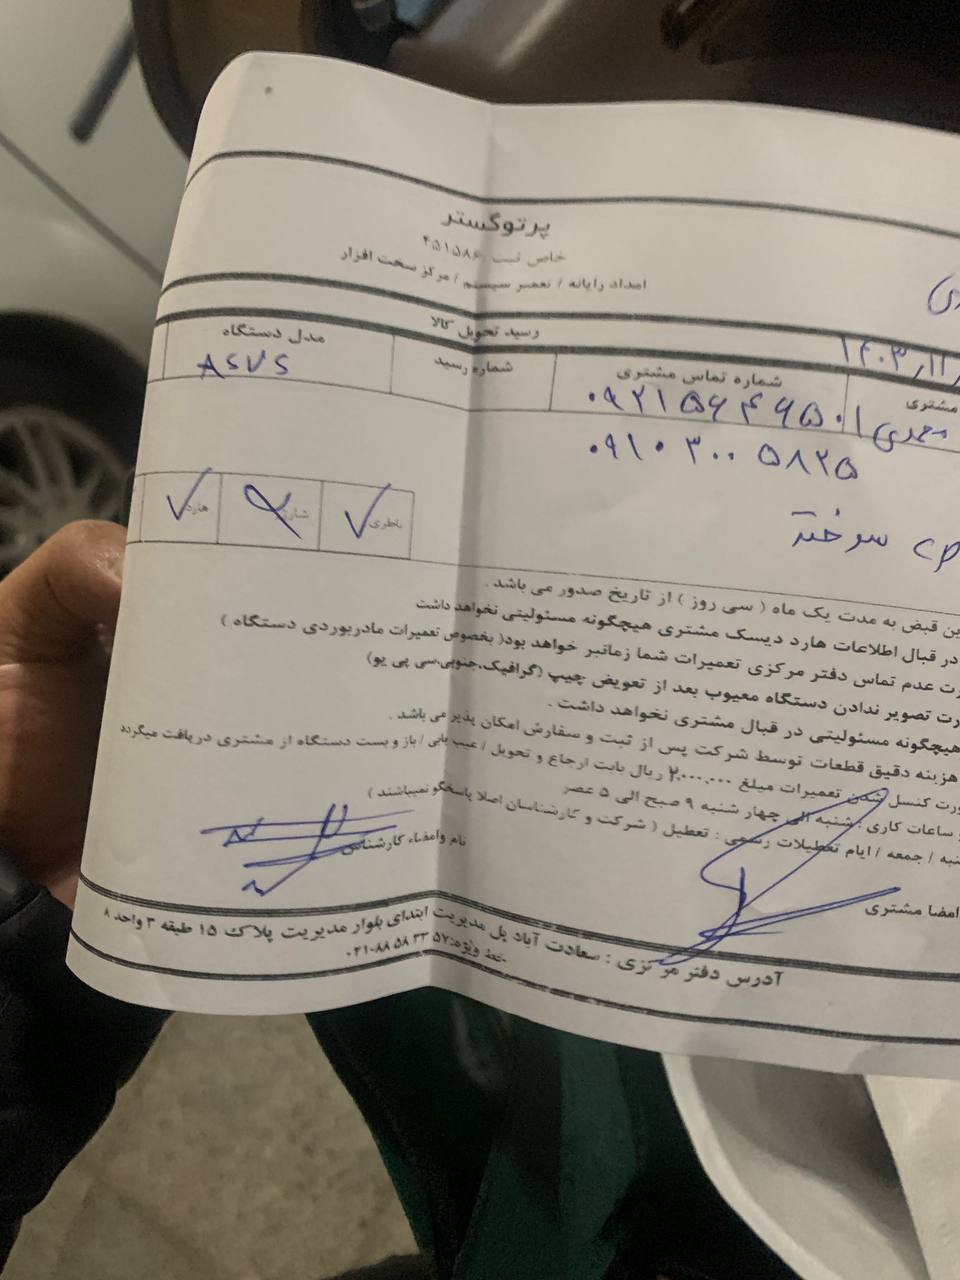 پرتوگستر
خاص ثبت ۴۵۱۵۸۶
امداد رایانه / تعمیر سیستم / مرکز سخت افزار
رسید تحویل کالا
۱۴۰۳/۱۱/
مشتری
شماره تماس مشتری
شماره رسید
مدل دستگاه
محمدی
۰۹۲۱۵۶۴۶۹۵۰۱
ASUS
۰۹۱۰۳۰۰۵۸۲۵
باطری ✓ شارژ هارد ✓
سوخته
ین قبض به مدت یک ماه ( سی روز ) از تاریخ صدور می باشد .
در قبال اطلاعات هارد دیسک مشتری هیچگونه مسئولیتی نخواهد داشت
رت عدم تماس دفتر مرکزی تعمیرات شما زمانبر خواهد بود( بخصوص تعمیرات مادربوردی دستگاه )
رت تصویر ندادن دستگاه معیوب بعد از تعویض چیپ (گرافیک،جنوبی،سی پی یو)
هیچگونه مسئولیتی در قبال مشتری نخواهد داشت .
هزینه دقیق قطعات توسط شرکت پس از ثبت و سفارش امکان پذیر می باشد .
ورت کنسل شدن تعمیرات مبلغ ۲,۰۰۰,۰۰۰ ریال بابت ارجاع و تحویل / عیب یابی / باز و بست دستگاه از مشتری دریافت میگردد
ساعات کاری : شنبه الی چهار شنبه ۹ صبح الی ۵ عصر
نبه / جمعه / ایام تعطیلات رسمی : تعطیل ( شرکت و کارشناسان اصلا پاسخگو نمیباشند )
امضا مشتری
نام وامضاء کارشناس
آدرس دفتر مرکزی : سعادت آباد پل مدیریت ابتدای بلوار مدیریت پلاک ۱۵ طبقه ۳ واحد ۸
خط ویژه:۵۷ ۳۳ ۵۸ ۸۸-۰۲۱